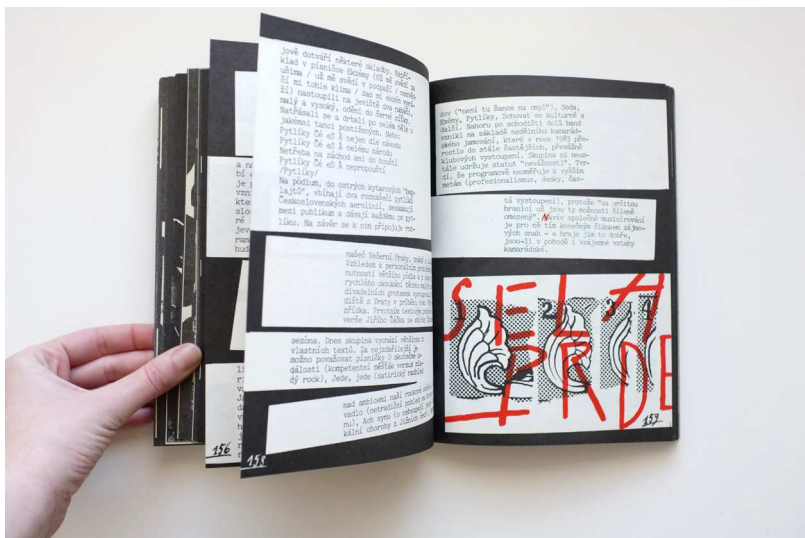 jově dotváří některé skladby. Např í-
klad v písničce Ekzémy (Už mě svědí za
ušima / už mě svědí v podpaží /
čí mi tohle klima / zas mi ekzém vyrá-
ží) nastoupili na jeviště dva naháči,
malý a vysoký, oděni do černé síťky.
Natřásali se a drbali po celém těle v
jakémsi tanci postižených. Nebo:
Pytlíky Čé eS Á nejen dle návodu
Pytlíky Čé eS Á celému národu
Netřeba na záchod ani do houští
Pytlíky Čé eS Á nepropouští
/Pytlíky/
Na pódium, do ostrých kytarových "beg-
lajtů", vbíhají dva roznašeči pytlíků
Československých aerolinií, seskakují
mezi publikum a dávají každému po pyt-
líku. Na závěr se k nim připojuje roz-
našeč Večerní Prahy, známý z
Vzhledem k personálním
nutnosti většího pódia a z
rychlého okoukání těchto
divadelních grotesek
diště s Vraty v průběhu
zřídka. Prvotním textovým
verše Jiřího Žáčka se
sezóna. Dnes skupina vychází většinou z
vlastních textů. Za nejzdařilejší je
možno považovat písničky O skutečné u-
dálosti (kompetentní měšťák versus mla-
dý rock), Jede, jede (satirický nadhled
nad ambicemi naší rockové
vadlo (netradiční pohled na
nu), Ach synu (o nebezpečí
kální choroby z Jižních
156
158
dov ("není tu šance na omyl"), Soda,
Ekzémy, Pytlíky, Schovat se kulturně a
další. Nahoru po schodišti dolů band
vznikl na základě nedělního kamarád-
ského jamování, které v roce 1983 pře-
rostlo do stále častějších, převážně
klubových vystoupení. Skupina si neus-
tále udržuje statut "nevážnosti". Tvr-
dí, že programově nesměřuje k vyšším
metám (profesionalismus, desky, čas-
tá vystoupení), protože "za určitou
hranicí už jsou ty možnosti šíleně
omezený". Navíc společné muzicírování
je pro ně tím konečným článkem zájmo-
vých snah - a hraje jim to dobře,
jsou-li v pohodě i vzájemné vztahy
kamarádské.
SELA
2 3 4
PRDE
159